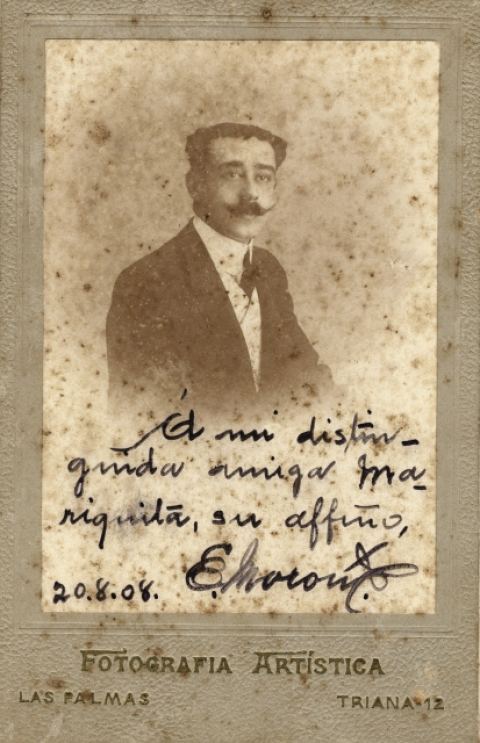 Á mi distin-
guida amiga Ma-
riquita, su affmo,
20.8.08.
FOTOGRAFIA ARTÍSTICA
LAS PALMAS
TRIANA-12